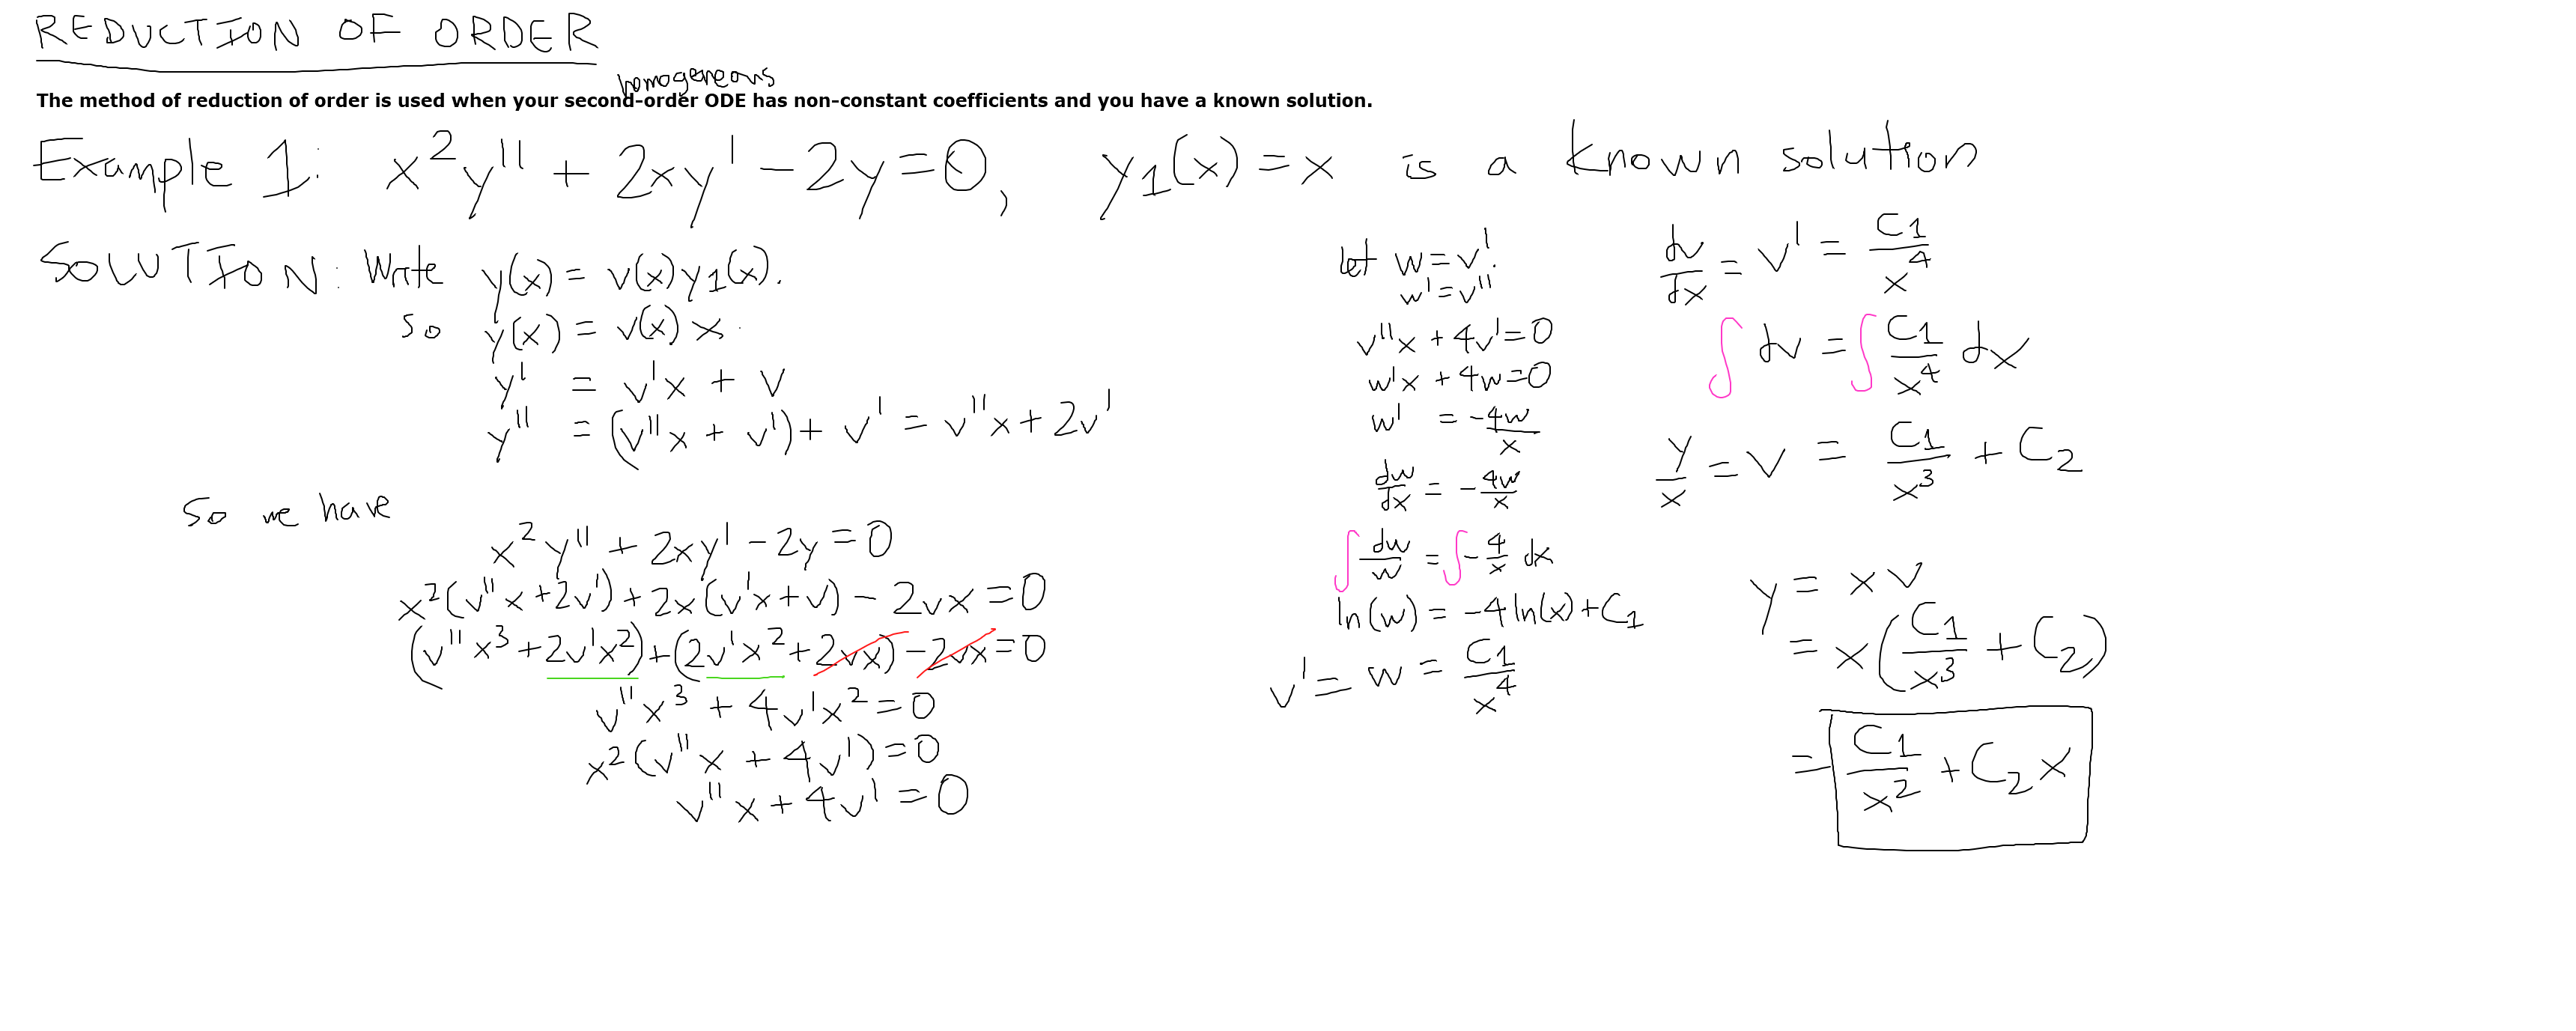 REDUCTION OF ORDER
homogeneous
The method of reduction of order is used when your second-order ODE has non-constant coefficients and you have a known solution.
Example 1: x²y'' + 2xy' - 2y = 0, y₁(x) = x is a known solution
SOLUTION: Write y(x) = v(x)y₁(x).
so y(x) = v(x) x.
y' = v'x + v
y'' = (v''x + v') + v' = v''x + 2v'
So we have
x²y'' + 2xy' - 2y = 0
x²(v''x + 2v') + 2x(v'x + v) - 2vx = 0
(v''x³ + 2v'x²) + (2v'x² + 2vx) - 2vx = 0
v''x³ + 4v'x² = 0
x²(v''x + 4v') = 0
v''x + 4v' = 0
let w = v'.
w' = v''
v''x + 4v' = 0
w'x + 4w = 0
w' = -4w/x
dw/dx = -4w/x
∫ dw/w = ∫ -4/x dx
ln(w) = -4 ln(x) + C₁
v' = w = C₁/x⁴
dv/dx = v' = C₁/x⁴
∫ dv = ∫ C₁/x⁴ dx
y/x = v = C₁/x³ + C₂
y = xv
= x(C₁/x³ + C₂)
= C₁/x² + C₂x